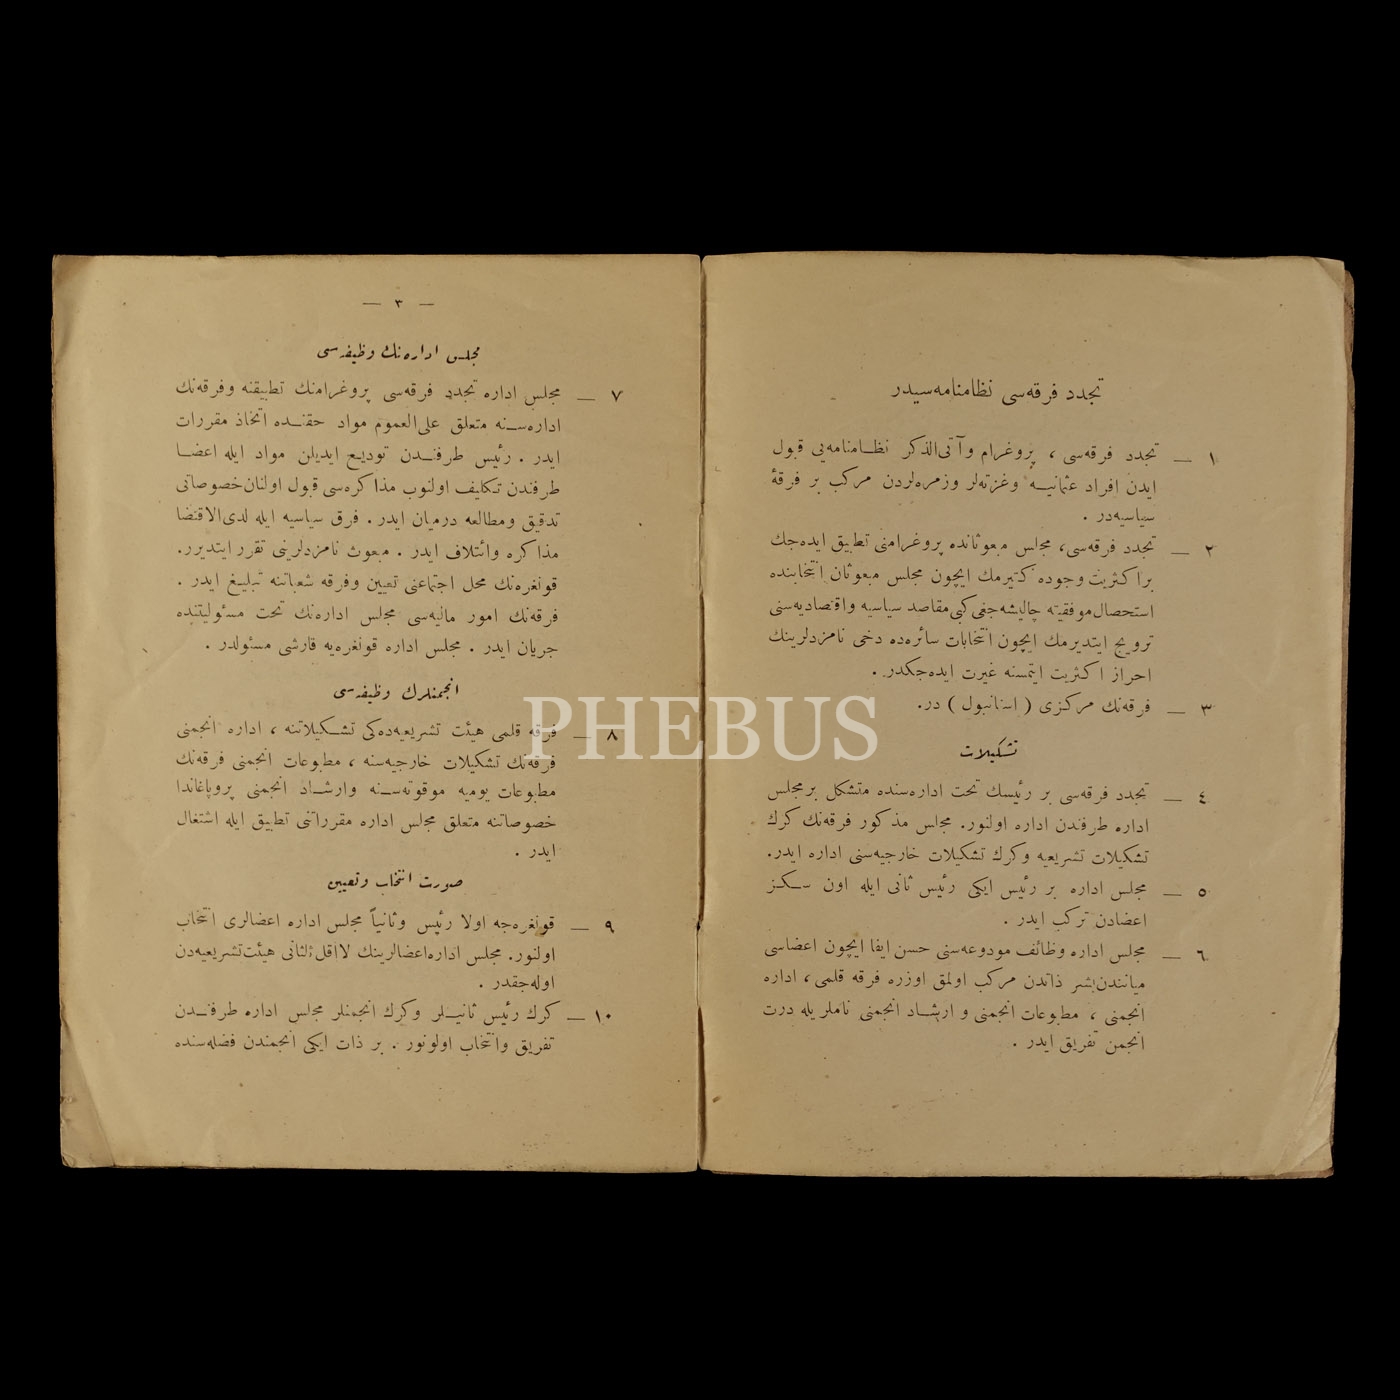 تجدد فرقه‌سی نظامنامه‌سیدر
١ — تجدد فرقه‌سی ، پروغرام و آتی‌الذكر نظامنامه‌یی قبول
ایدن افراد عثمانیه وغزته‌لر وزمره‌لردن مركب بر فرقۀ
سیاسیه‌در .
٢ — تجدد فرقه‌سی، مجلس مبعوثانده پروغرامنی تطبیق ایده‌جك
براكثریت وجوده كتیرمك ایچون مجلس مبعوثان انتخابنده
استحصال موفقیته چالیشه‌جغی كبی مقاصد سیاسیه واقتصادیه‌سنی
ترویج ایتدیرمك ایچون انتخابات سائره‌ده دخی نامزدلرینك
احراز اكثریت ایتمسنه غیرت ایده‌جكدر .
٣ — فرقه‌نك مركزی ( استانبول ) در.
تشكیلات
٤ — تجدد فرقه‌سی بر رئیسك تحت اداره‌سنده متشكل برمجلس
اداره طرفندن اداره اولنور. مجلس مذكور فرقه‌نك كرك
تشكیلات تشریعیه وكرك تشكیلات خارجیه‌سنی اداره ایدر.
٥ — مجلس اداره بر رئیس ایكی رئیس ثانی ایله اون سكز
اعضادن تركب ایدر .
٦ — مجلس اداره وظائف مودوعه‌سنی حسن ایفا ایچون اعضاسی
میانندن بشر ذاتدن مركب اولمق اوزره فرقه قلمی ، اداره
انجمنی ، مطبوعات انجمنی و ارشاد انجمنی ناملر یله درت
انجمن تفریق ایدر .
— ٣ —
مجلس اداره‌نك وظیفه‌سی
٧ — مجلس اداره تجدد فرقه‌سی پروغرامنك تطبیقنه وفرقه‌نك
اداره‌سنه متعلق علی‌العموم مواد حقنده اتخاذ مقررات
ایدر . رئیس طرفندن تودیع ایدیلن مواد ایله اعضا
طرفندن تكلیف اولنوب مذاكره‌سی قبول اولنان خصوصاتی
تدقیق ومطالعه درمیان ایدر . فرق سیاسیه ایله لدی‌الاقتضا
مذاكره وائتلاف ایدر . مبعوث نامزدلرینی تقرر ایتدیرر.
قونغره‌نك محل اجتماعنی تعیین وفرقه شعباتنه تبلیغ ایدر .
فرقه‌نك امور مالیه‌سی مجلس اداره‌نك تحت مسئولیتنده
جریان ایدر . مجلس اداره قونغره‌یه قارشی مسئولدر .
انجمنلرك وظیفه‌سی
٨ — فرقه قلمی هیئت تشریعیه‌ده‌كی تشكیلاتنه ، اداره انجمنی
فرقه‌نك تشكیلات خارجیه‌سنه ، مطبوعات انجمنی فرقه‌نك
مطبوعات یومیه موقوته‌سنه وارشاد انجمنی پروپاغاندا
خصوصاتنه متعلق مجلس اداره مقرراتنی تطبیق ایله اشتغال
ایدر .
صورت انتخاب وتعیین
٩ — قونغره‌جه اولا رئیس وثانیاً مجلس اداره اعضالری انتخاب
اولنور. مجلس اداره اعضالرینك لااقل ثلثانی هیئت تشریعیه‌دن
اوله‌جقدر .
١٠ — كرك رئیس ثانیلر وكرك انجمنلر مجلس اداره طرفندن
تفریق وانتخاب اولونور . بر ذات ایكی انجمندن فضله‌سنده
PHEBUS